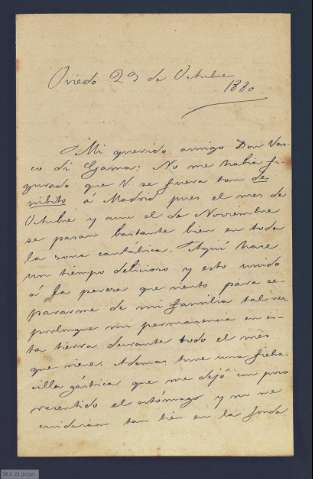 Oviedo 29 de Octubre
1880
Mi querido amigo Don Vas-
co di Gama: No me habia fi-
gurado que V. se fuera tan de
súbito á Madrid pues el mes de
Octubre y aun el de Noviembre
se pasan bastante bien en toda
la zona cantábrica. Aquí hace
un tiempo delicioso y esto unido
á la pereza que siento para se-
pararme de mi familia tal vez
prolongue mi permanencia en es-
ta tierra durante todo el mes
que viene. Ademas tuve una fiebre-
cilla gástrica que me dejó un poco
resentido el estómago y no me
cuidarian tan bien en la fonda